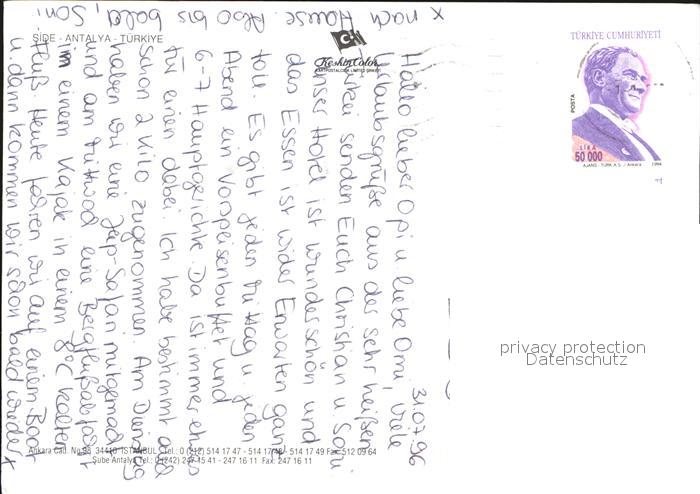 SİDE - ANTALYA - TÜRKİYE
Keskin Color
KARTPOSTALCILIK LIMITED ŞİRKETİ
TÜRKİYE CUMHURİYETİ
POSTA
LİRA
50 000
AJANS - TÜRK A.Ş. / Ankara 1994
31.07.96
Hallo lieber Opi u. liebe Omi, viele
Urlaubsgrüße aus der sehr heißen
Türkei senden Euch Christian u. Soni.
Unser Hotel ist wunderschön und
das Essen ist wider Erwarten ganz
toll. Es gibt jeden Mittag u. jeden
Abend ein Vorspeisenbuffet und
6-7 Hauptgerichte. Da ist immer etwas
für einen dabei. Ich habe bestimmt
schon 2 Kilo zugenommen. Am Dienstag
haben wir eine Jeep-Safari mitgemacht
und am Mittwoch eine Bergflußabfahrt
im einem Kajak in einem 8°C kalten
Fluß. Heute fahren wir auf einem Boot
u. dann kommen wir schon bald wieder x
x nach Hause. Also bis bald, Soni
privacy protection
Datenschutz
Ankara Cad. No: 98 34410 İSTANBUL Tel.: 0 (212) 514 17 47 - 514 17 48 - 514 17 49 Fax: 512 09 64
Şube Antalya Tel.: 0 (242) 247 15 41 - 247 16 11 Fax: 247 16 11